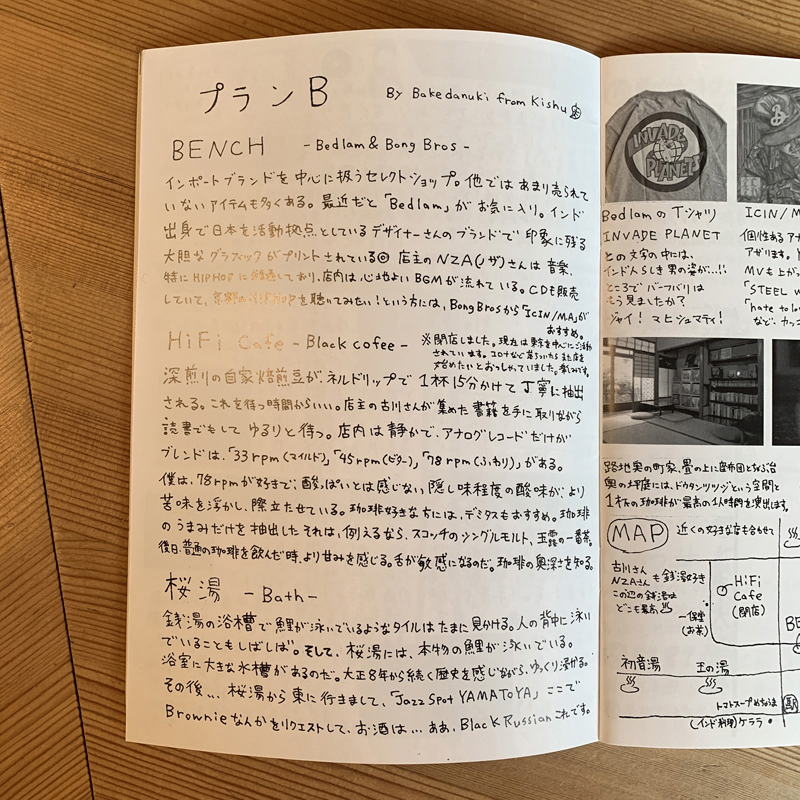 プランB
By Bakedanuki from Kishu
BENCH -Bedlam & Bong Bros-
インポートブランドを中心に扱うセレクトショップ。他ではあまり売られて
いないアイテムも多くある。最近だと「Bedlam」がお気に入り。インド
出身で日本を活動拠点としているデザイナーさんのブランドで印象に残る
大胆なグラフィックがプリントされている◎ 店主のNZA(ノザ)さんは音楽、
特にHIPHOPに精通しており、店内は心地よいBGMが流れている。CDも販売
していて、京都のHIPHOPを聴いてみたい!という方には、Bong Brosから「ICIN/MA」が
おすすめ。
HiFi Cafe -Black cofee-
※閉店しました。現在は東京を中心にご活動
されています。コロナなど落ちついたらまた店を
始めたいとおっしゃていました。楽しみです。
深煎りの自家焙煎豆が、ネルドリップで1杯15分かけて丁寧に抽出
される。これを待つ時間がいい。店主の古川さんが集めた書籍を手に取りながら
読書でもしてゆるりと待つ。店内は静かで、アナログレコードだけが
ブレンドは、「33rpm(マイルド)」「45rpm(ビター)」「78rpm(ふわり)」がある。
僕は、78rpmが好きで、酸っぱいとは感じない、隠し味程度の酸味が、より
苦味を浮かし、際立たせている。珈琲好きな方には、デミタスもおすすめ。珈琲
のうまみだけを抽出したそれは、例えるなら、スコッチのシングルモルト、玉露の一番茶。
後日、普通の珈琲を飲んだ時、より甘みを感じる。舌が敏感になるのだ。珈琲の奥深さを知る。
桜湯 -Bath-
銭湯の浴槽で鯉が泳いでいるようなタイルはたまに見かける。人の背中に泳い
でいることもしばしば。そして、桜湯には、本物の鯉が泳いでいる。
浴室に大きな水槽があるのだ。大正8年から続く歴史を感じながら、ゆっくり浸かる。
その後... 桜湯から東に行きまして、「Jazz Spot YAMATOYA」ここで
Brownieなんかをリクエストして、お酒は... ああ、Black Russianこれです。
INVADE
PLANET
BedlamのTシャツ
INVADE PLANET
との文字の中には、
インド人らしき男の姿が...!!
ところでバーフバリは
もう見ましたか?
ジャイ!マヒシュマティ!
ICIN/M
個性あるアナ
アザリます。
MVも上が
「STEEL w
「hate to lo
など、カッコ
路地奥の町家、畳の上に座布団とならぶ
奥の坪庭には、ドウダンツツジという空間と
1杯の珈琲が最高の1人時間を演出します。
MAP
近くの好きな店も合わせて
古川さん
NZAさん も銭湯好き
この辺の銭湯は
どこも最高
HiFi
Cafe
(閉店)
一保堂
(お茶)
BE
初音湯
玉の湯
トマトスープ
(インド料理)ケララ
駅